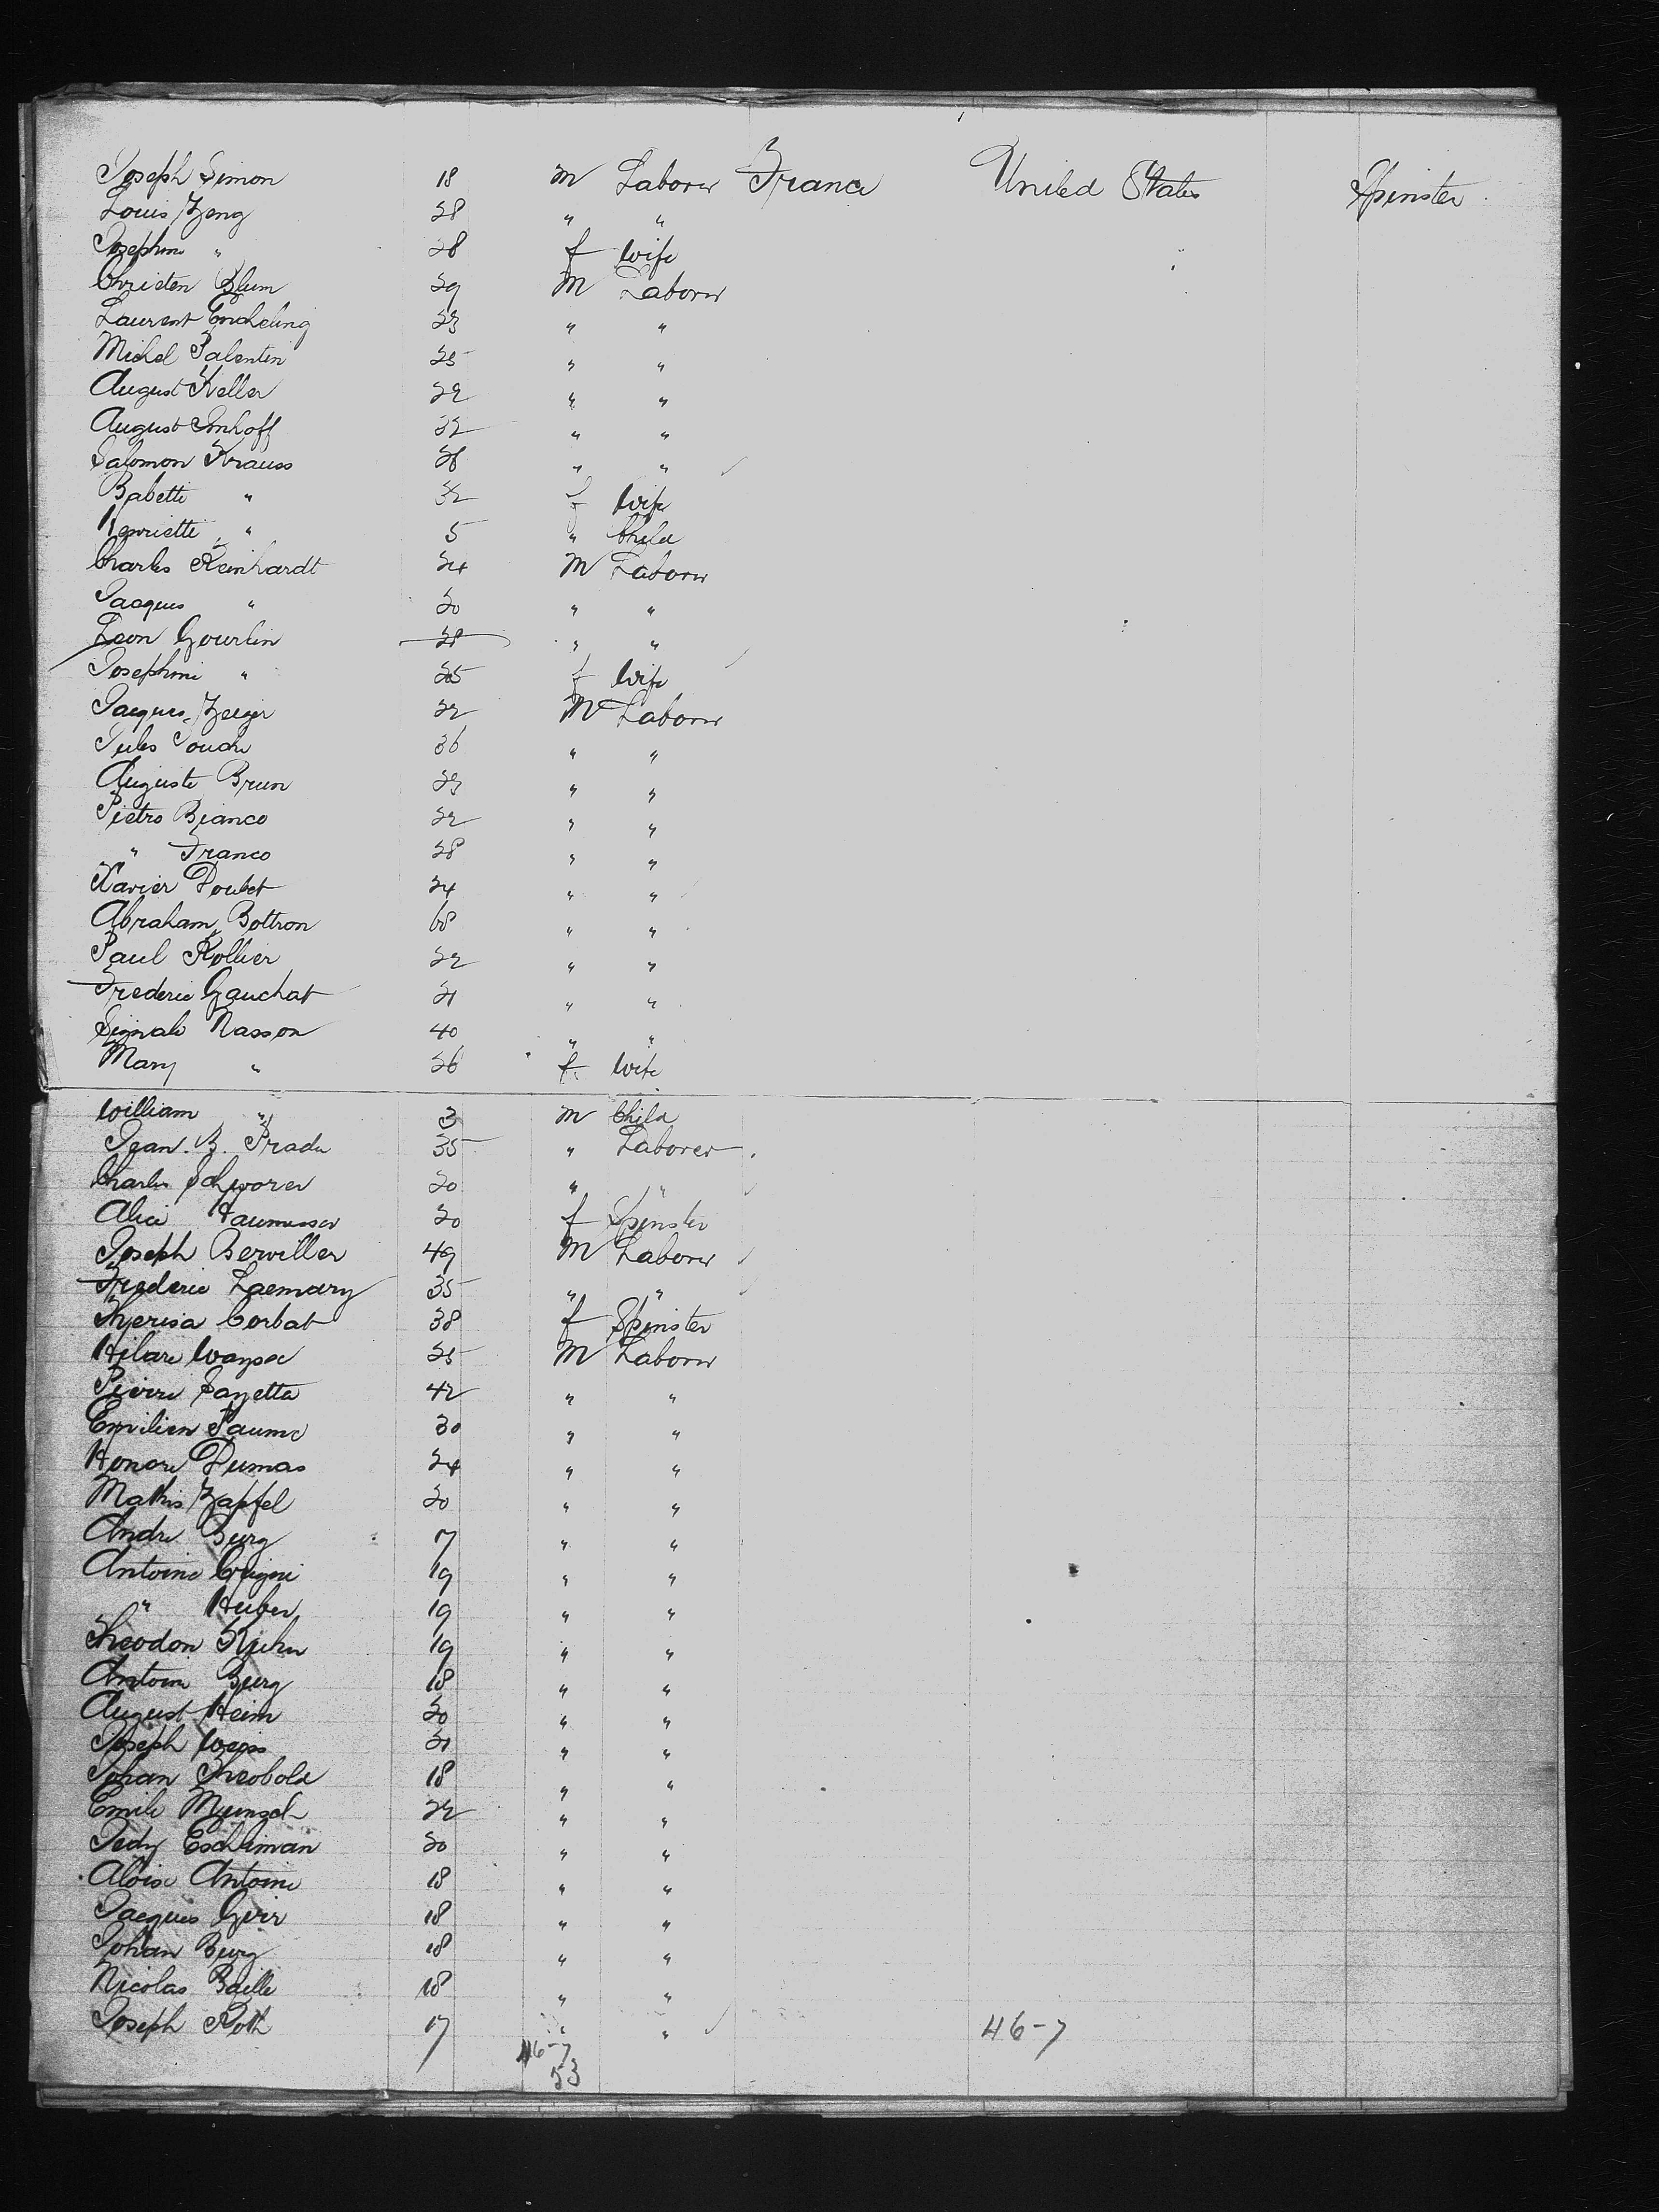 Joseph Simon 18 m Laborer France United States Spinster
Louis Zeng 28 " "
Josephine " 28 f Wife
Christen Blum 29 M Laborer
Laurent Encheling 23 " "
Michel Palentin 25 " "
August Keller 22 " "
August Imhoff 32 " "
Salomon Krauss 38 " "
Babette " 32 f Wife
Henriette " 5 " Child
Charles Reinhardt 24 M Laborer
Jacques " 20 " "
Leon Gourlin 28 " "
Josephine " 25 f Wife
Jacques Zeiger 22 M Laborer
Jules Pouch 36 " "
Auguste Brun 23 " "
Pietro Bianco 22 " "
" Franco 28 " "
Xavier Doubet 24 " "
Abraham Bottron 68 " "
Paul Rollier 22 " "
Frederic Gauchat 21 " "
Nasson 40 " "
Mary " 26 f. Wife
William " 3 m Child
Jean. B. Prade 35 " Laborer
Charles Schworer 20 " "
Alice 20 f Spinster
Joseph Berviller 49 M Laborer
Frederic Laemary 35 " "
Theresa Corbat 38 f Spinster
Hilare 25 M Laborer
Pierre Sayetta 42 " "
Emilien Paume 30 " "
Honore Dumas 24 " "
Mathis Zapfel 20 " "
Andre Burg 17 " "
Antoine 19 " "
" Huber 19 " "
Theodore Kuhn 19 " "
Antoine Burg 18 " "
August Heim 20 " "
Joseph Weiss 21 " "
Johan Theobold 18 " "
Emile 22 " "
Eschliman 20 " "
Aloise Antoine 18 " "
Jacques Geir 18 " "
Johan Burg 18 " "
Nicolas Baille 18 " "
Joseph Roth 17 " " 46-7
46-7
53